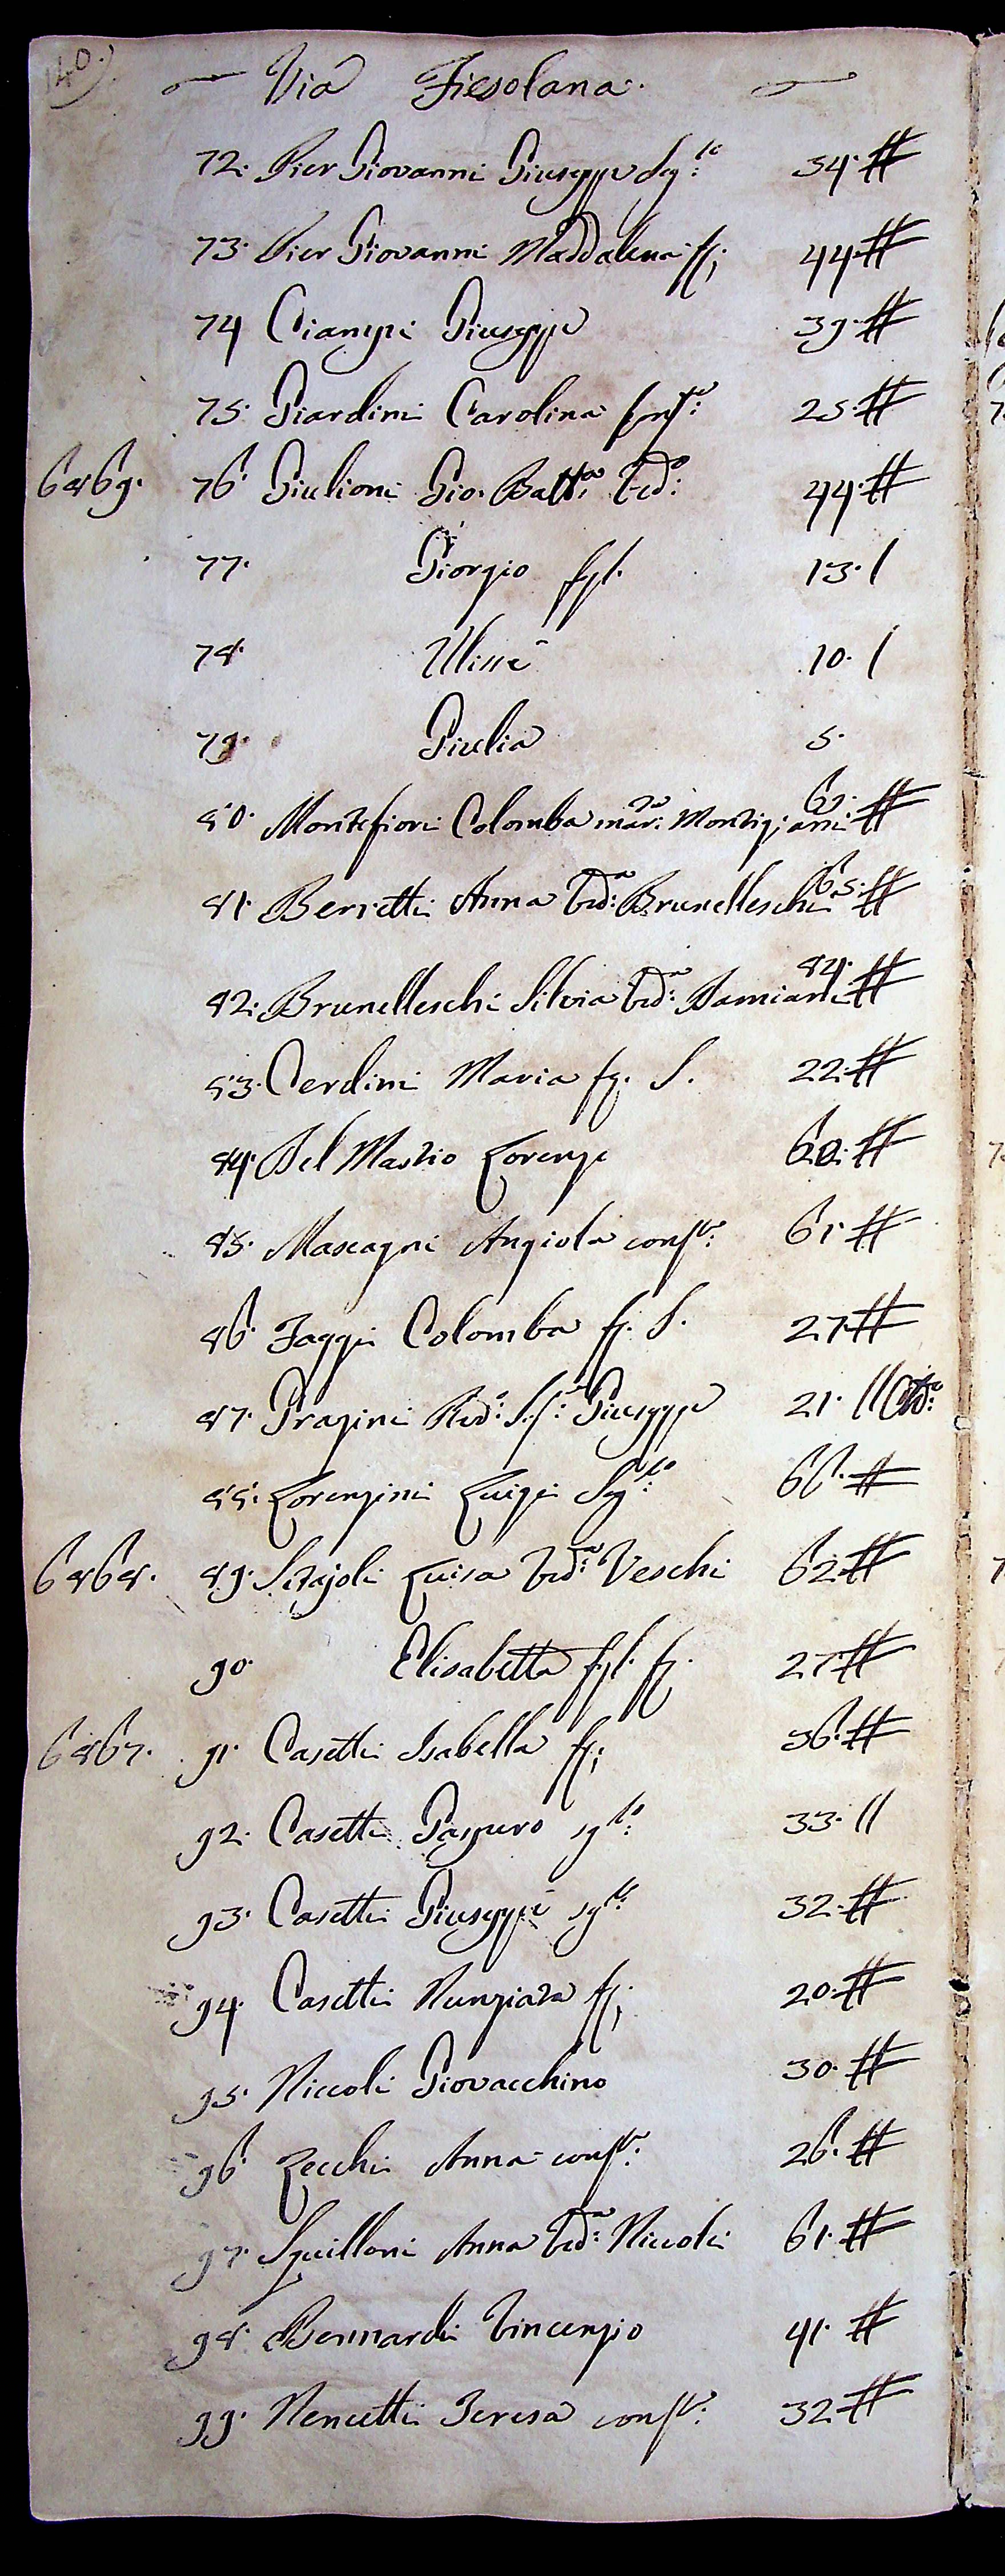 140.)
Via Fiesolana.
72. Pier Giovanni Giuseppe Sg.to 34. #
73. Pier Giovanni Maddalena ff; 44. #
74 Ciampi Giuseppe 39. #
75. Giardini Carolina Cons.te 25. #
6869. 76 Giulioni Gio. Batt.a Ved.o 44. #
77. Giorgio figl. 13. /
78. Ulisse 10. /
79. Giulia 5.
80. Montefiori Colomba mar.ta Montigiani 62. #
81. Berretti Anna Ved.a Brunelleschi 65. #
82. Brunelleschi Silvia Ved.a Damiani 84. #
83. Cerdini Maria fg. S. 22. #
84. Del Mastio Lorenzo 60. #
85. Mascagni Angiola cons.te 61. #
86. Faggi Colomba fg. S. 27. #
87. Grazini Giuseppe 21. //
88. Lorenzini Luigi Sg.to #
6868. 89. Luisa Ved.a Veschi 62 #
90. Elisabetta figl. fg. 27 #
6867. 91. Casetti Isabella ff; 36. #
92. Casetti Gaspero sg.to 33. //
93. Casetti Giuseppe sg.to 32. #
94. Casetti Nunziata ff; 20. #
95. Niccoli Giovacchino 30. #
96. Zecchi Anna cons.te 26. #
97. Squilloni Anna Ved.a Niccoli 61. #
98. Bennardi Vincenzio 41. #
99. Nencetti Teresa cons.te 32 #